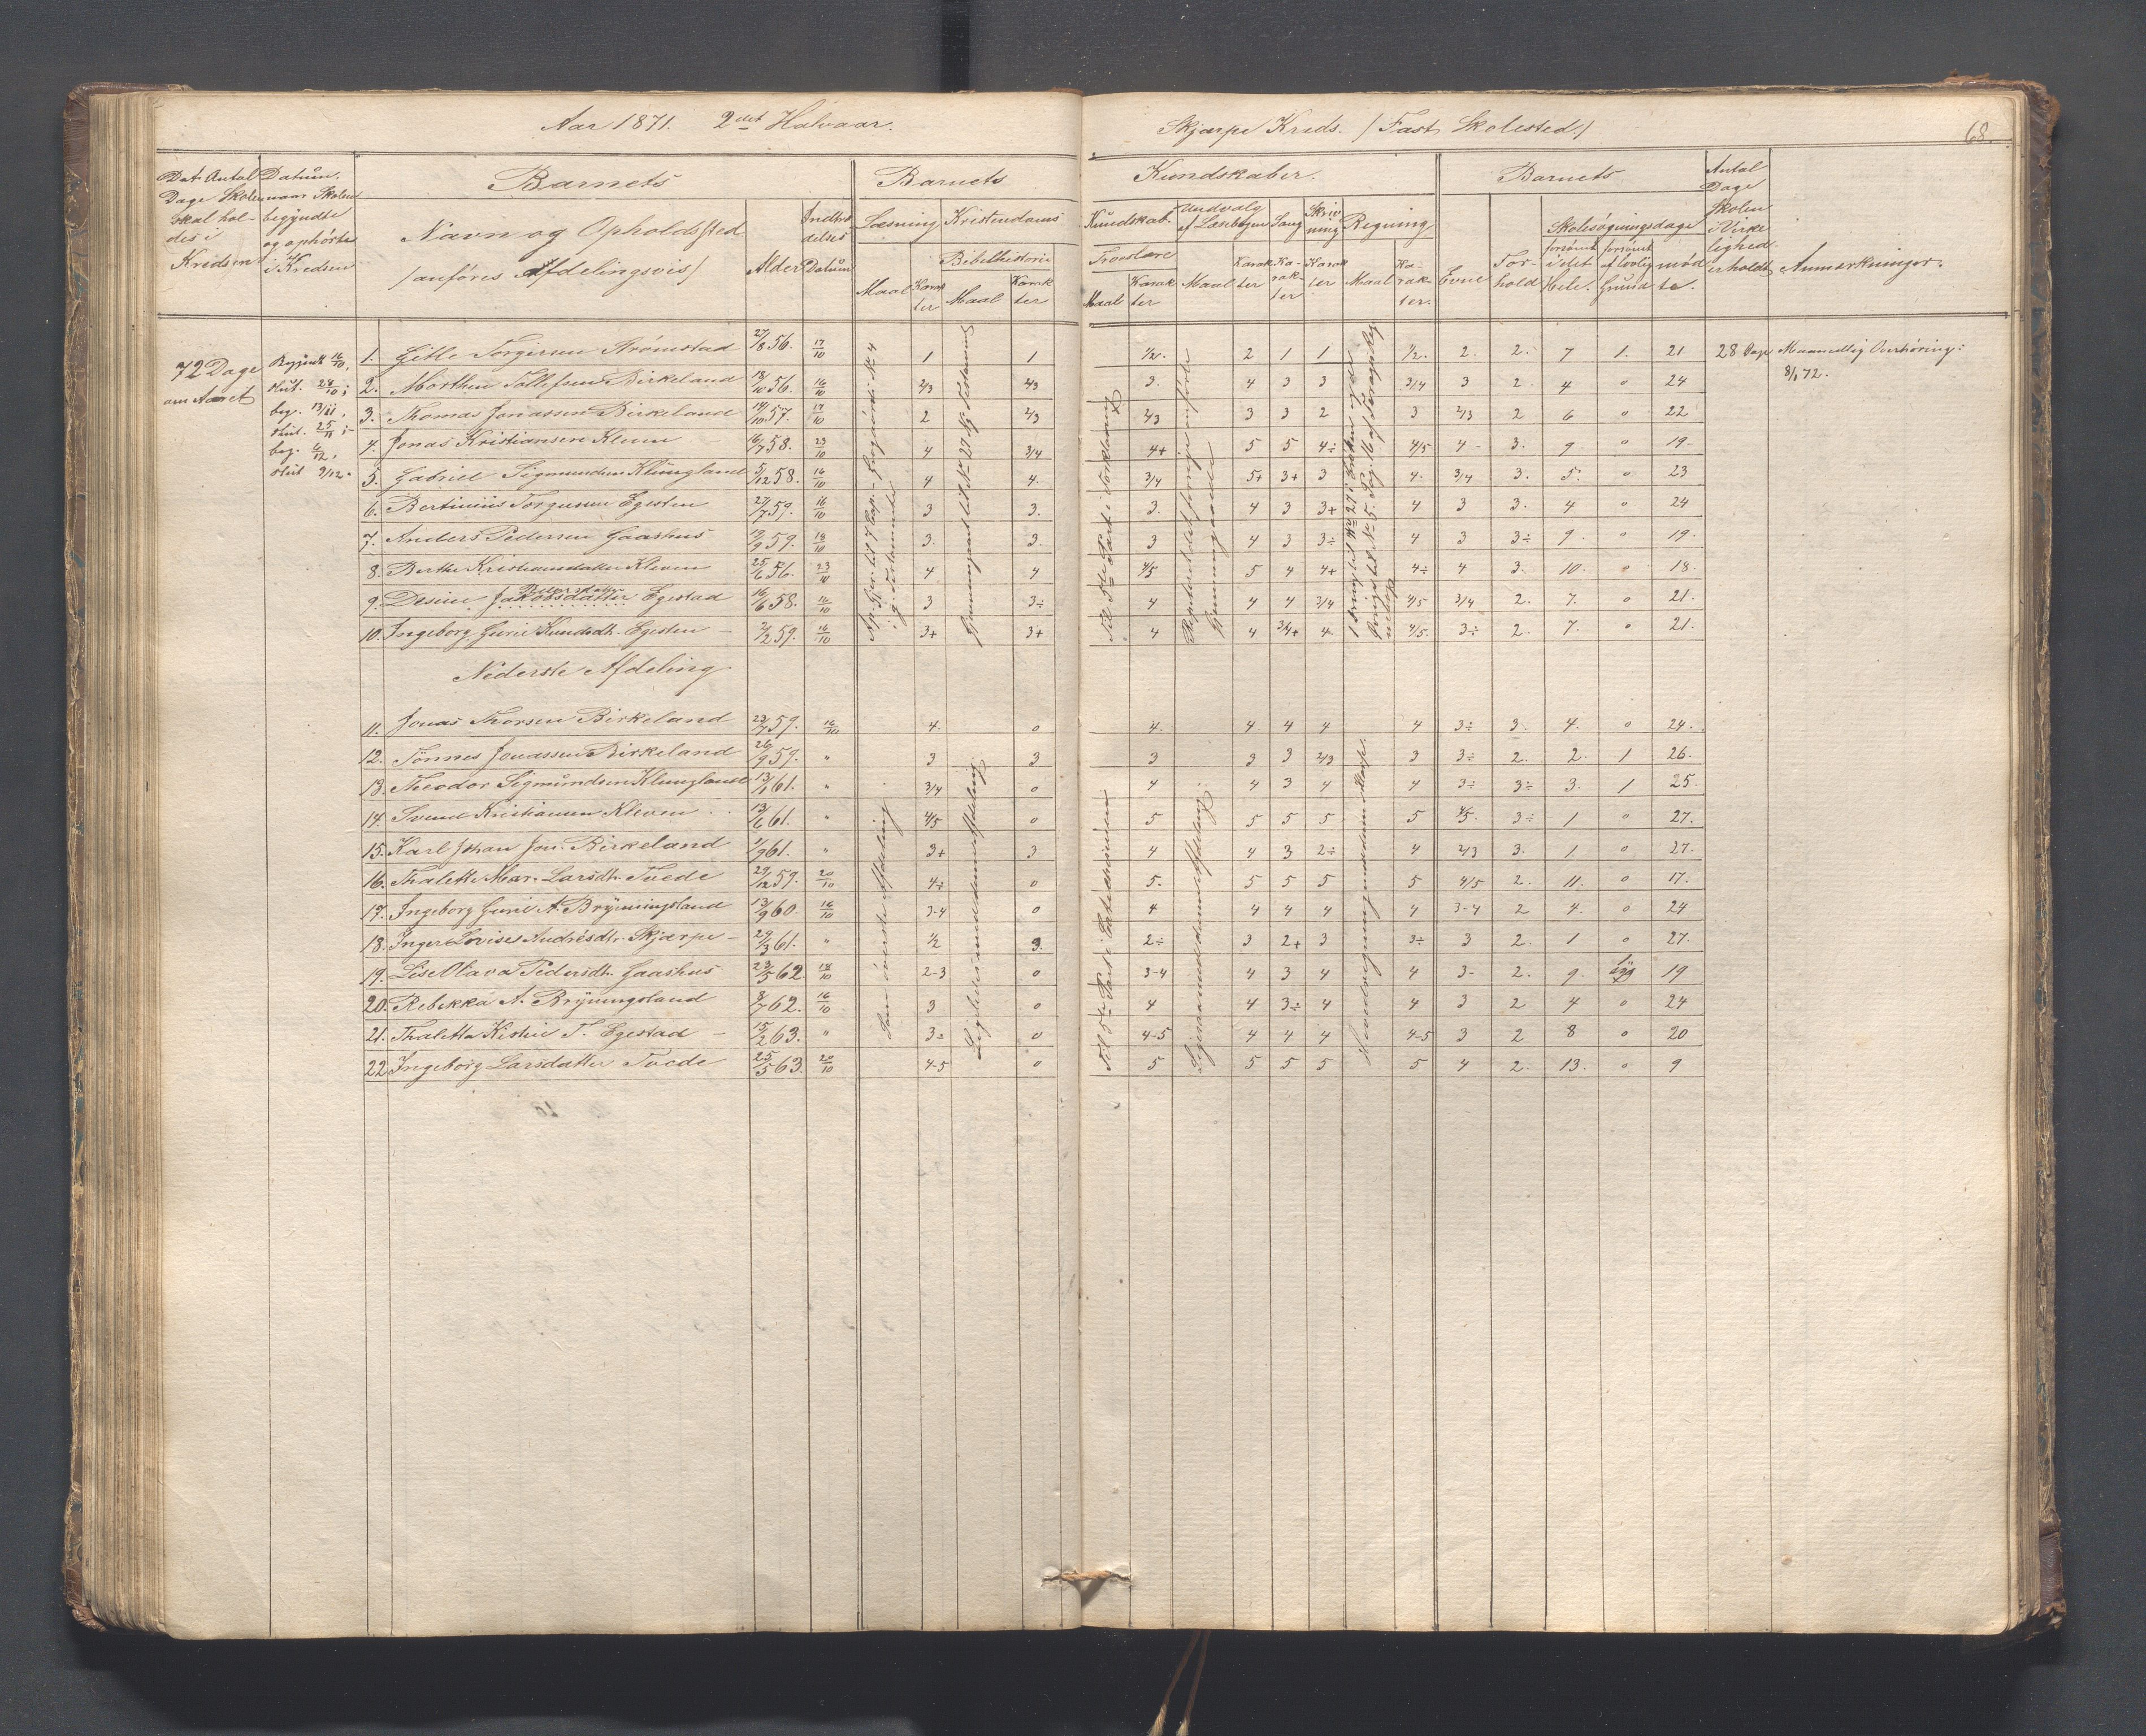 Aar 1871. 2det Halvaar.
Skjærpe Kreds. /Fast Skolested./
68.
Det Antal Dage Skolen skal holdes i Kredsen
Datum naar Skolen begyndte og ophørte i Kredsen
Barnets
Navn og Opholdssted
/anføres Afdelingsvis/
Alder
Indtrædelses Datum
Barnets
Læsning
Maal
Karakter
Kristendoms
Bibelhistorie
Maal
Karakter
Kundskaber.
Kundskab.
Troeslære
Maal
Karakter
Uudvalg af Læsebogen
Maal
Karakter
Sang
Karakter
Skrivning
Karakter
Regning
Maal
Karakter.
Barnets
Evne
Forhold
Skolesøgningsdage
forsømt i det Hele.
forsømt af lovlig Grund
mødte.
Antal Dage Skolen i Virkelighed erholdt
Anmærkninger.
72 Dage om Aaret
Begyndt 16/10,
slut. 28/10;
beg. 13/11,
slut. 25/11;
beg. 6/12,
slut 9/12.
1. Gitle Torgersen Strømstad 27/8 56. 17/10 1 1 1/2. 2 1 1 1/2. 2. 2. 7 1. 21 28 Dage Maanedlig Overhøring:
8/1 72.
2. Morthen Tollefsen Birkeland 18/10 56. 16/10 2/3 2/3 3. 4 3 3 3/4 3 2 4 0 24
3. Thomas Jonassen Birkeland 14/10 57. 17/10 2 2/3 2/3 3 3 2 3 2/3 2 6 0 22
4. Jonas Kristiansen Kleven 16/7 58. 23/10 4 3/4 4+ 5 5 4÷ 4/5 4- 3. 9. 0 19-
5. Gabriel Sigmundsen Klungland 5/12 58. 16/10 4 4. 3/4 5+ 3+ 3 4. 3/4 3. 5. 0 23
6. Bertinius Torgersen Egesten 27/7 59. 16/10 3 3. 3. 4 3 3+ 4 3 3. 4 0 24
7. Anders Pedersen Gaashus 12/9 59. 18/10 3. 3. 3 4 3 3÷ 4 3 3÷ 9. 0 19.
8. Berthe Kristiansdatter Kleven 25/6 56. 23/10 4. 4 4/5 5 4 4+ 4÷ 4 3. 10. 0 18.
9. Desine Jakobsdatter Egestad 16/6 58. 16/10 3 3÷ 4 4 4 3/4 4/5 3/4 2. 7. 0 21.
10. Ingeborg Gurie Knudsdt. Egesten 2/2 59. 16/10 3+ 3+ 4 4 3/4+ 4 4/5. 3÷ 2 7. 0 21.
Nederste Afdeling
11. Jonas Thorsen Birkeland 23/7 59. 16/10 4. 0 4. 4 4 4 4 3÷ 3. 4. 0 24.
12. Tønnes Jonassen Birkeland 26/9 59. " 3 3 3 3 3 2/3 3 3÷ 2. 2. 1 26.
13. Theodor Sigmundsen Klungland 13/1 61. " 3/4 0 4 4 3 4 4 3÷ 3÷ 3. 1 25.
14. Svend Kristiansen Kleven 13/6 61. " 4/5 0 5 5 5 5 5 4/5. 3÷ 1 0 27.
15. Karl Johan Jon. Birkeland 1/9 61. " 3+ 3 4 4 3 2÷ 4 2/3 3. 1 0 27.
16. Thalette Mar. Larsdt. Tvede 29/12 59. 20/10 4÷ 0 5. 5 5 5 5 4/5 2. 11. 0 17.
17. Ingeborg Gurie A. Bryningsland 13/9 60. 16/10 3-4 0 4 4 4 4 4 3-4 2 4. 0 24
18. Inger Lovise Andrésdt. Skjærpe 29/3 61. " 1/2 3. 2÷ 3 2+ 3 3÷ 3 2. 1 0 27.
19. Lise Olava Pedersdt. Gaashus 23/5 62. 18/10 2-3 0 3-4 4 3 4 4 3- 2. 9. syg 19
20. Rebekka A. Bryningsland 8/7 62. 16/10 3 0 4 4 3÷ 4 4 3 2 4 0 24
21. Thaletta Kistie T. Egestad 15/2 63. " 3÷ 0 4-5 4 4 4 4-5 3 2 8 0 20
22 Ingeborg Larsdatter Tvede 25/5 63. 20/10 4-5 0 5 5 5 5 5 4 2. 13. 0 9
Som øverste Afdeling
Ligeledes med denne Afdeling.
Til 5te Part i Forklaring
Til 5te Part i Katekismen
Ligesaa med denne Afdeling.